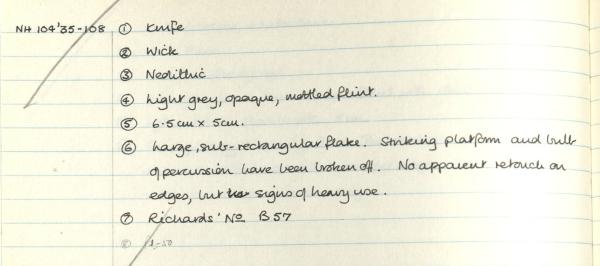 NH 104'35-108 ① Knife
② Wick
③ Neolithic
④ Light grey, opaque, mottled flint.
⑤ 6.5cm x 5cm.
⑥ Large, sub-rectangular flake. Striking platform and bulb
of percussion have been broken off. No apparent retouch on
edges, but signs of heavy use.
⑦ Richards' No B57
⑧ 1-50